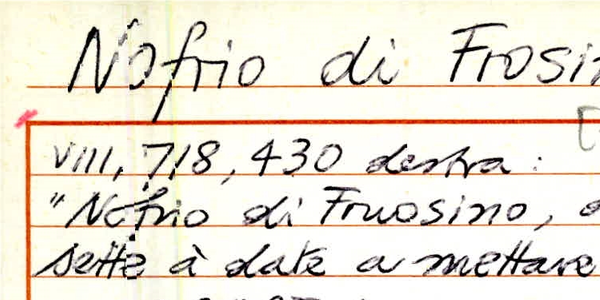 Nofrio di Frosi
VIII, 718, 430 destra:
"Nofrio di Fruosino,
sette à date a mettare